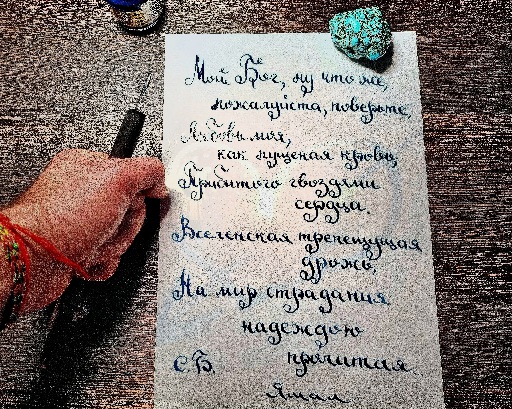 Мой Бог, ну что же,
пожалуйста, поверьте,
Любовь моя,
как пущеная кровь,
Прибитого гвоздями
сердца.
Вселенская трепещущая
дрожь,
На мир страдания
надеждою
прочится
С.Б.
Ямал